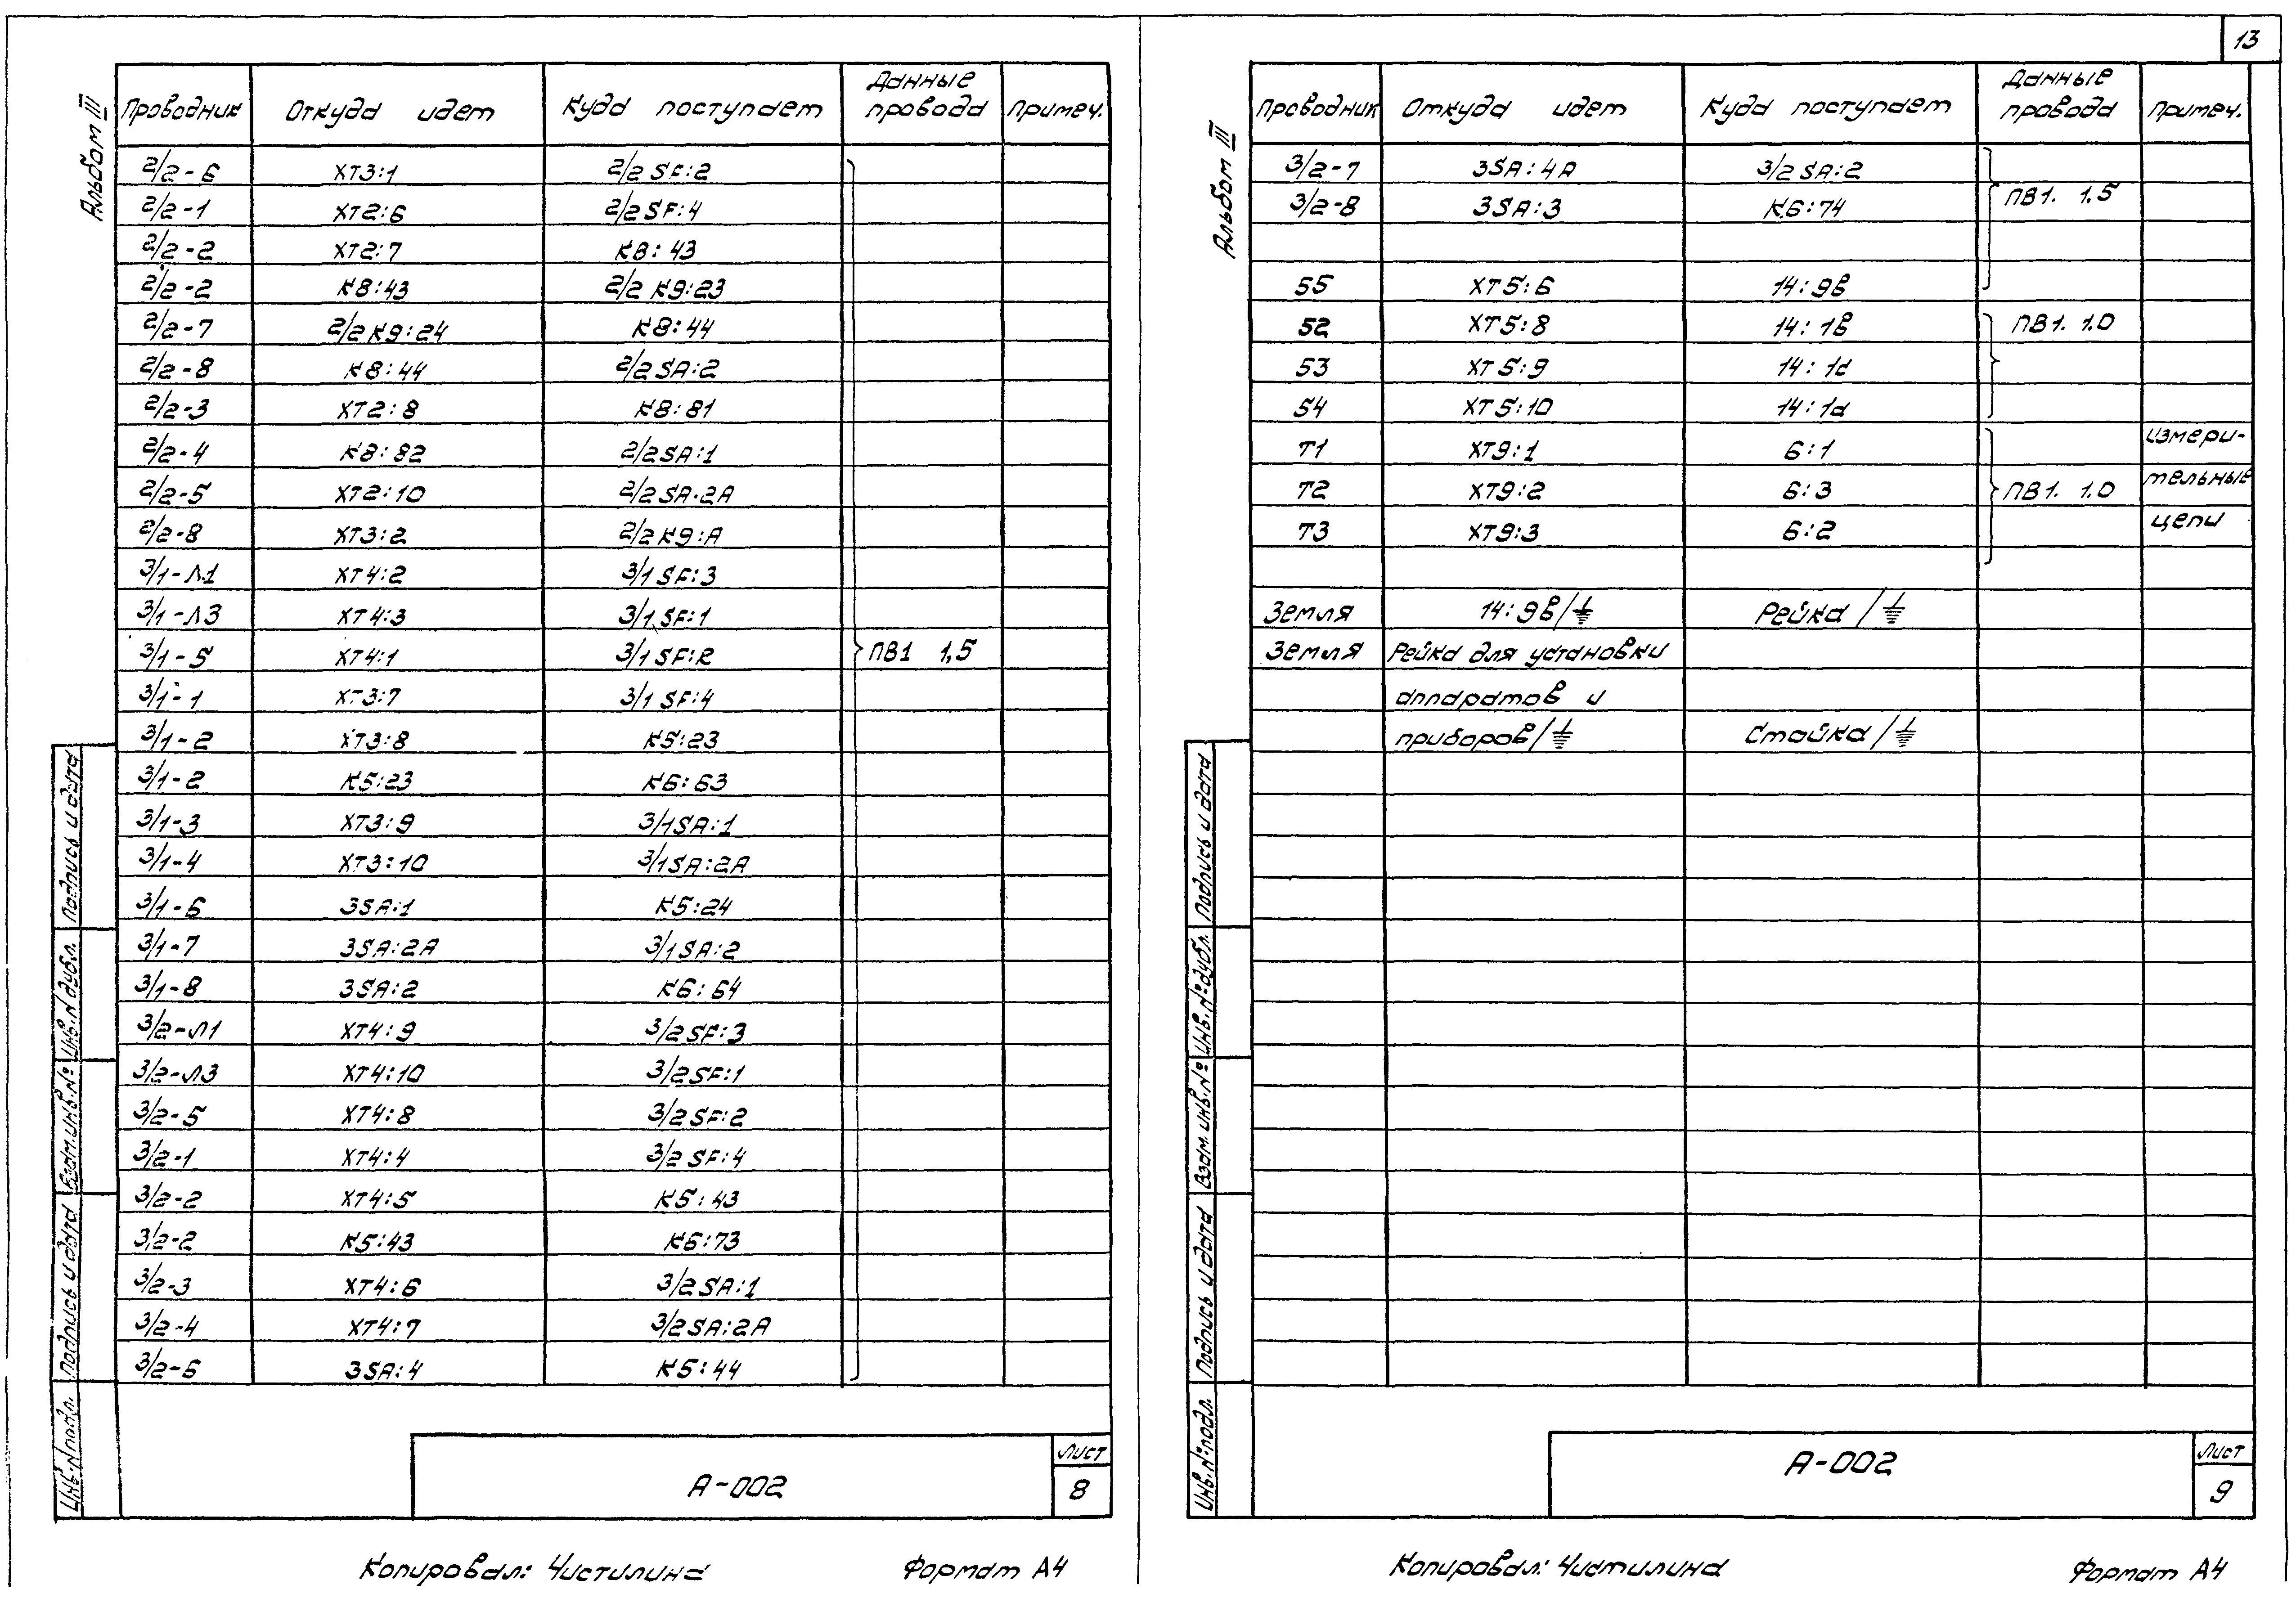 13
Альбом III
Проводник Откуда идет Куда поступает Данные провода Примеч.
2/2-6 ХТ3:1 2/2 SF:2
2/2-1 ХТ2:6 2/2 SF:4
2/2-2 ХТ2:7 К8:43
2/2-2 К8:43 2/2 К9:23
2/2-7 2/2 К9:24 К8:44
2/2-8 К8:44 2/2 SA:2
2/2-3 ХТ2:8 К8:81
2/2-4 К8:82 2/2 SA:1
2/2-5 ХТ2:10 2/2 SA·2А
2/2-8 ХТ3:2 2/2 К9:А
3/1-Л1 ХТ4:2 3/1 SF:3
3/1-Л3 ХТ4:3 3/1 SF:1
3/1-5 ХТ4:1 3/1 SF:2 ПВ1 1,5
3/1-1 ХТ3:7 3/1 SF:4
3/1-2 ХТ3:8 К5:23
3/1-2 К5:23 К6:63
3/1-3 ХТ3:9 3/1SA:1
3/1-4 ХТ3:10 3/1SA:2А
3/1-6 3SA:1 К5:24
3/1-7 3SA:2А 3/1SA:2
3/1-8 3SA:2 К6:64
3/2-Л1 ХТ4:9 3/2 SF:3
3/2-Л3 ХТ4:10 3/2 SF:1
3/2-5 ХТ4:8 3/2 SF:2
3/2-1 ХТ4:4 3/2 SF:4
3/2-2 ХТ4:5 К5:43
3/2-2 К5:43 К6:73
3/2-3 ХТ4:6 3/2 SA:1
3/2-4 ХТ4:7 3/2SA:2А
3/2-6 3SA:4 К5:44
Подпись и дата
Инв.N дубл.
Взам.инв.№
Подпись и дата
Инв.N подл.
А-002
Лист
8
Копировал: Чистилина Формат А4
Альбом III
Проводник Откуда идет Куда поступает Данные провода Примеч.
3/2-7 3SA:4А 3/2 SA:2
3/2-8 3SA:3 К6:74 ПВ1. 1,5
55 ХТ5:6 14:9в
52 ХТ5:8 14:1в ПВ1. 1.0
53 ХТ5:9 14:1d
54 ХТ5:10 14:1d
Т1 ХТ9:1 6:1 измери-
Т2 ХТ9:2 6:3 ПВ1. 1.0 тельные
Т3 ХТ9:3 6:2 цепи
Земля 14:9в/⏚ Рейка/⏚
Земля Рейка для установки
аппаратов и
приборов/⏚ Стойка/⏚
Подпись и дата
Инв.№дубл.
Взам.инв.№
Подпись и дата
Инв.№подл.
А-002
Лист
9
Копировал: Чистилина Формат А4